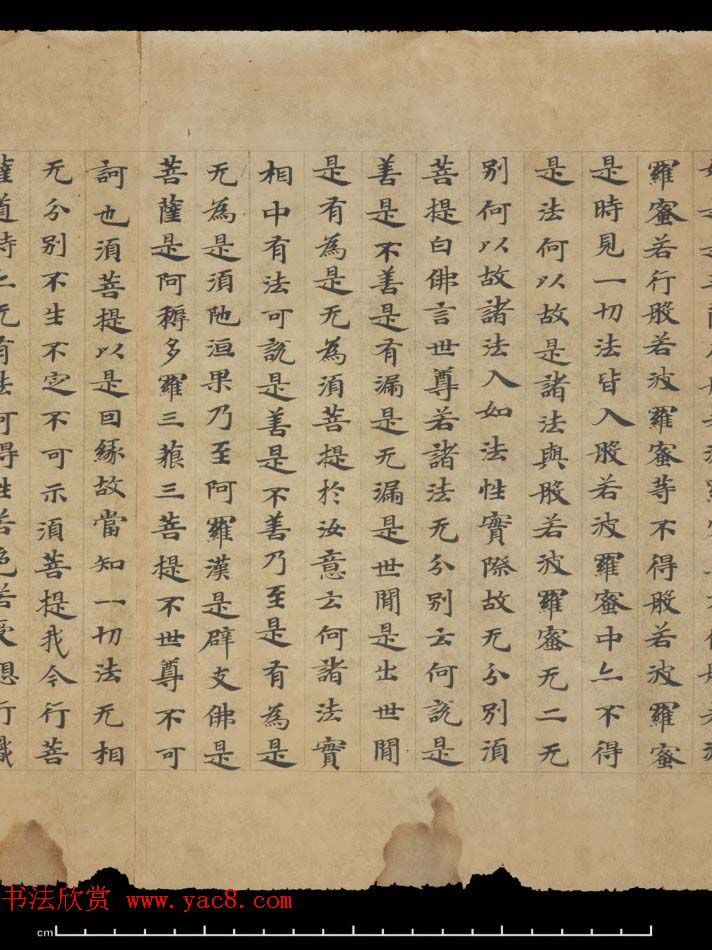 羅蜜若行般若波羅蜜等不得般若波羅蜜
是時見一切法皆入般若波羅蜜中亦不得
是法何以故是諸法與般若波羅蜜无二无
別何以故諸法入如法性實際故无分別須
菩提白佛言世尊若諸法无分別云何說是
善是不善是有漏是无漏是世間是出世間
是有為是无為須菩提於汝意云何諸法實
相中有法可說是善是不善乃至是有為是
无為是須陁洹果乃至阿羅漢是辟支佛是
菩薩是阿耨多羅三藐三菩提不世尊不可
訶也須菩提以是因緣故當知一切法无相
无分別不生不定不可示須菩提我今行菩
薩道時亦无有法可得性若色若受想行識
书法欣赏 www.yac8.com
cm